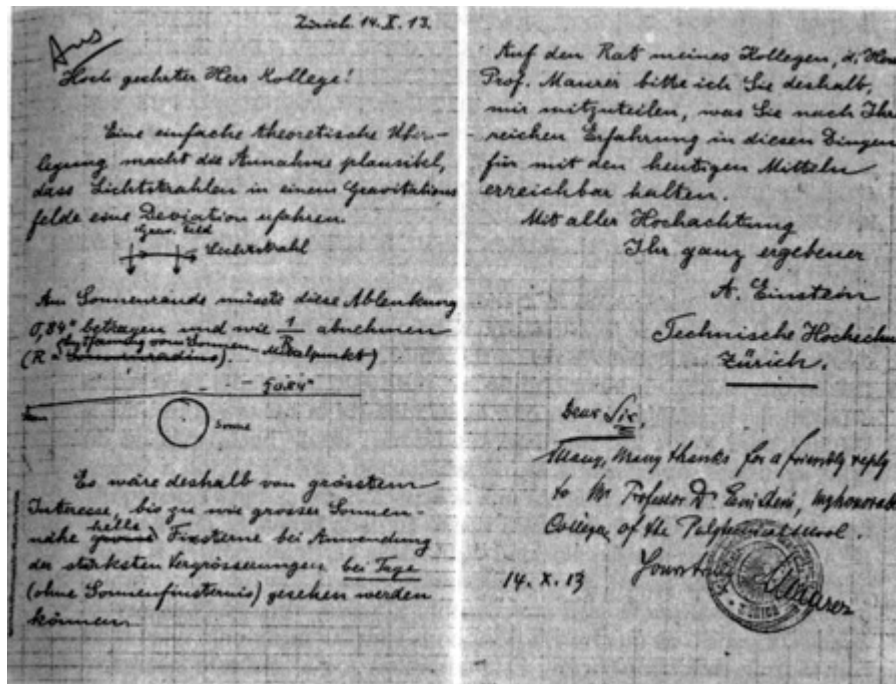 Zürich 14. X. 13.
Hoch geehrter Herr Kollege!
Eine einfache theoretische Über-
legung macht die Annahme plausibel,
dass Lichtstrahlen in einem Gravitations
felde eine Deviation erfahren.
Grav. Feld
Lichtstrahl
Am Sonnenrande müsste diese Ablenkung
0,84" betragen und wie 1/R abnehmen
(R = Sonnenradius).
0.84"
Sonne
Es wäre deshalb von grösstem
Interesse, bis zu wie grosser Sonnen-
nähe helle Fixsterne bei Anwendung
der stärksten Vergrösserungen bei Tage
(ohne Sonnenfinsternis) gesehen werden
können.
Auf den Rat meines Kollegen, d. Herrn
Prof. Maurer bitte ich Sie deshalb,
mir mitzuteilen, was Sie nach Ihrer
reichen Erfahrung in diesen Dingen
für mit den heutigen Mitteln
erreichbar halten.
Mit aller Hochachtung
Ihr ganz ergebener
A. Einstein
Technische Hochschule
Zürich.
Dear Sir,
Many, many thanks for a friendly reply
to Mr Professor Dr Einstein, my honorable
Collegue of the
14. X. 13
Maurer